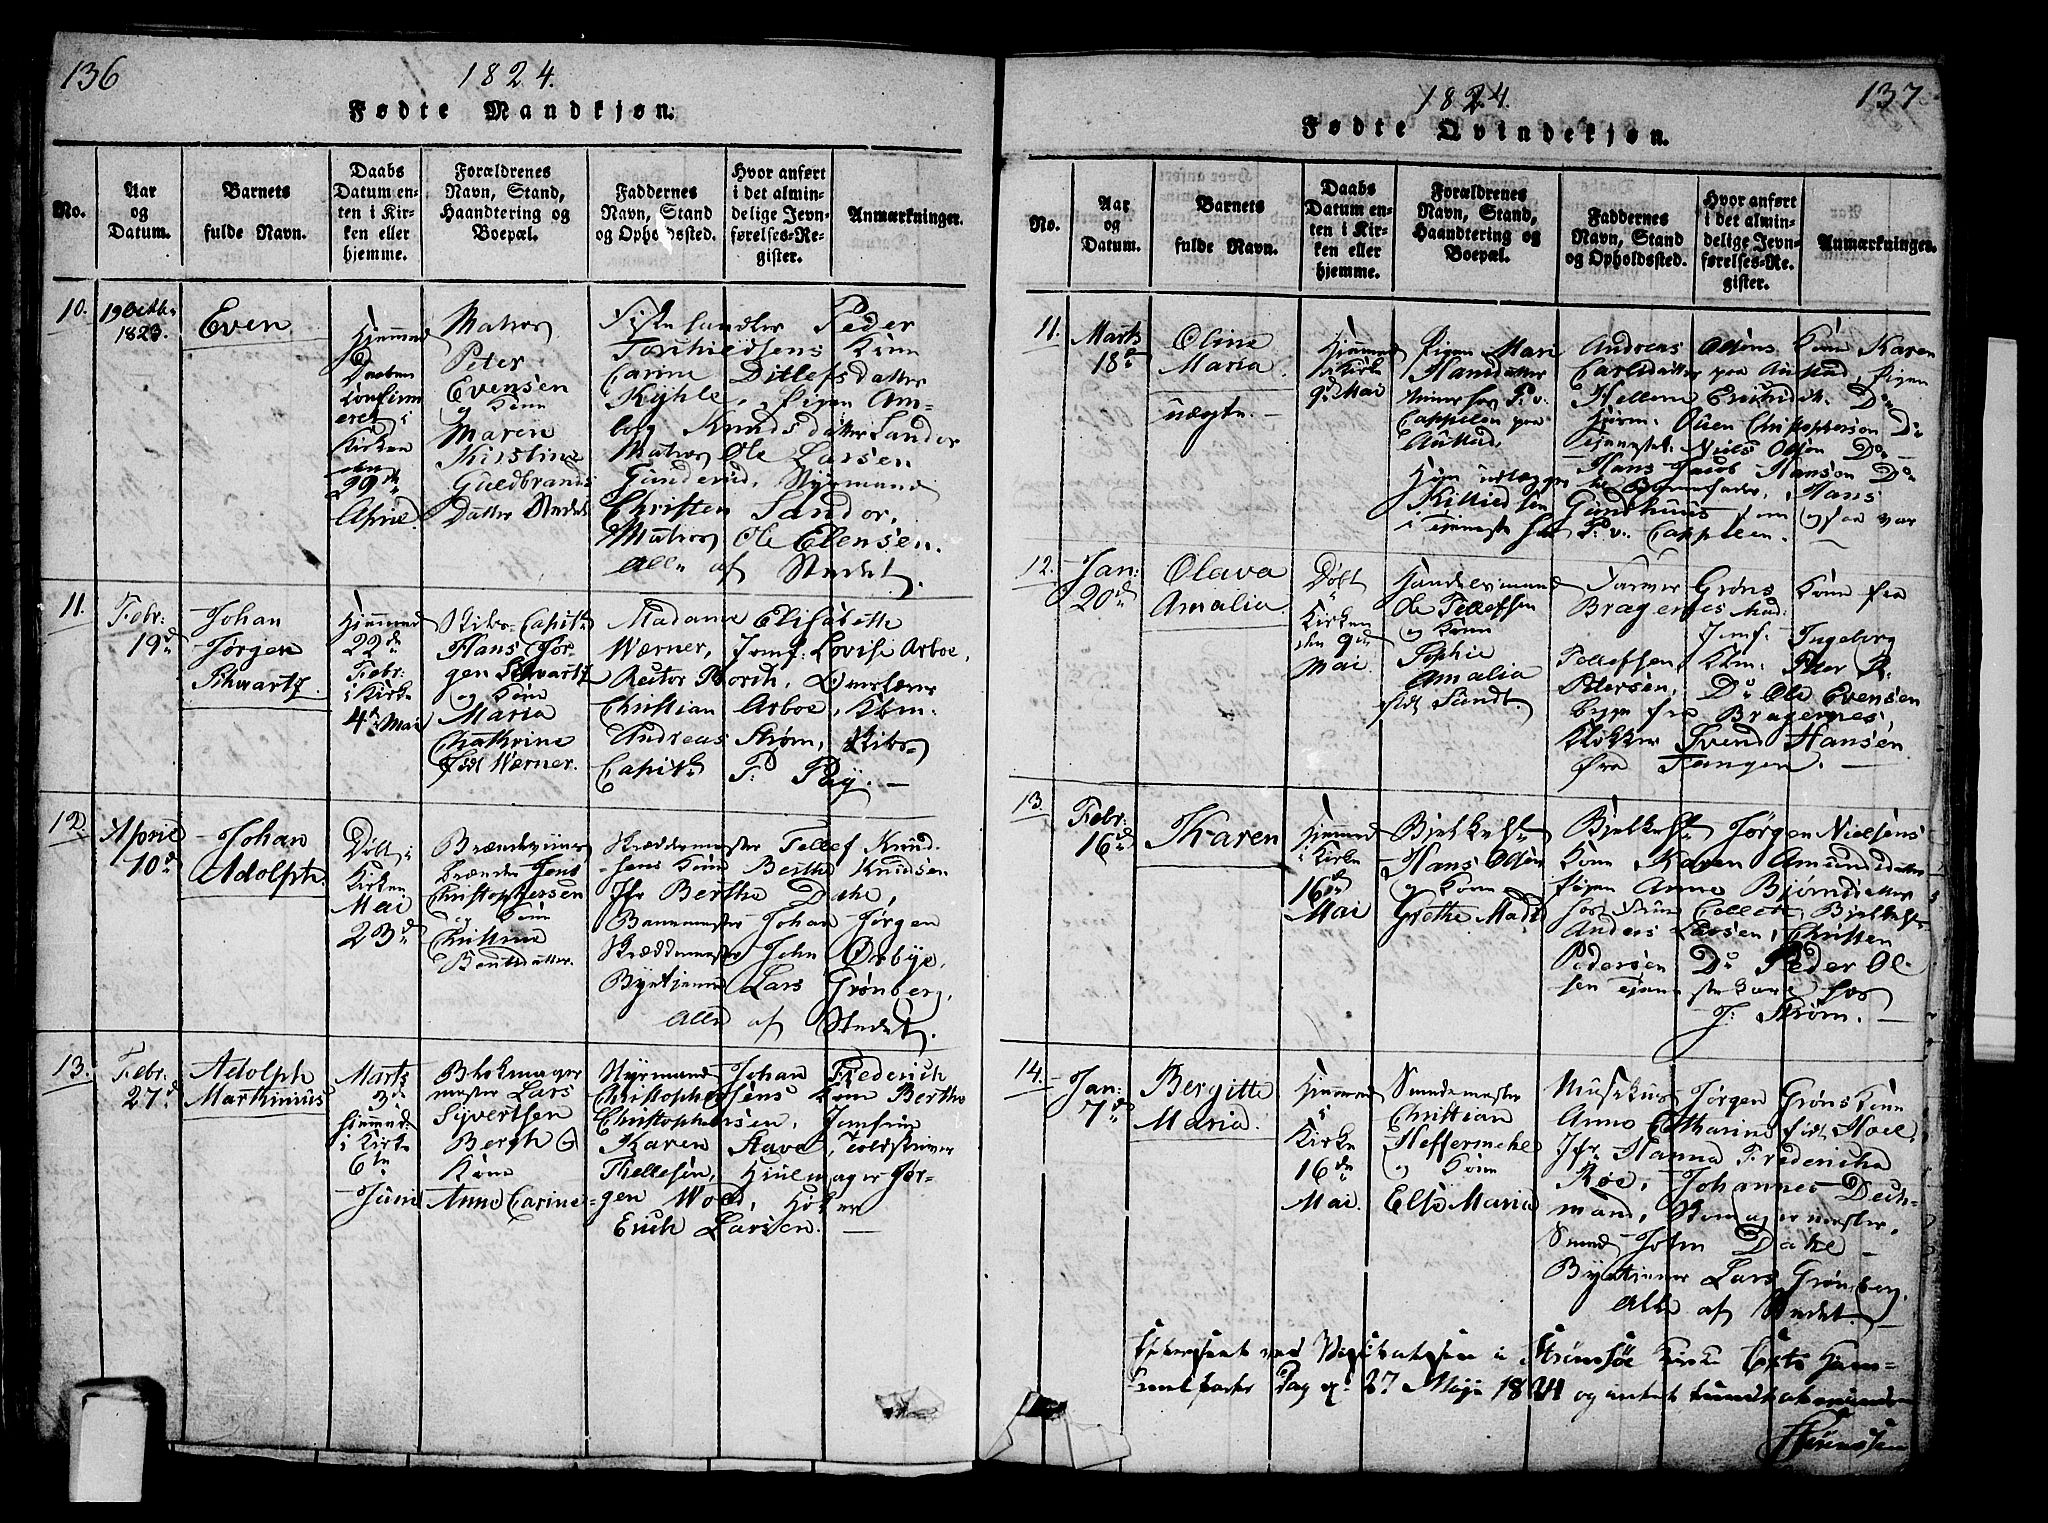 136
1824.
Fødte Mandkjøn.
No.
Aar og Datum.
Barnets fulde Navn.
Daabs Datum enten i Kirken eller hjemme.
Forældrenes Navn, Stand, Haandtering og Boepæl.
Faddernes Navn, Stand og Opholdssted.
Hvor anført i det almindelige Jevnførelses-Register.
Anmærkninger.
10.
1823.
Even
Hjemmed
Daaben
Confirmeret i
Kirken
den
29de
April
Matros
Peter
Evensen
og Kone
Maren
Kirstine
Guldbrands
Datter Stedet
Peder
Torkieldsens Kone
Carine Ditlefsdatter
Kyhle, Pigen Am-
borg Knudsdatter Sandor
Matros Ole Larsen
Gunderud, Styrmand
Christen Sandor,
Matros Ole Edensen.
alle af Stedet.
11.
Febr:
19de
Johan
Jørgen
Schwartz.
Hjemmed
22de
Febr:
i Kirke
4de Mai
Skibs-Capit:
Hans Jør-
gen Schwartz
og Kone
Maria
Cathrine
født Wærner.
Madame Elisabeth
Wærner, Jomf: Lovise Arboe,
Rector Borch,
Christian Arboe, Kbm.
Andreas Strøm, Skibs-
Capit: P: Paÿ. —
12.
April
10de
Johan
Adolph.
Døbt i
Kirken
Mai
23de
Brændeviins
brænder Jens
Christophersen
og Kone
Christine
Bentsdatter.
Skræddermester Tellef Knud-
sens Kone Berthe Knudsen
Jfr Berthe Dehe,
Johan Jørgen
Skræddermester John Ørbye,
Byetjener Lars Grønberg,
alle af Stedet.
13.
Febr:
27de
Adolph
Martinius
Marts
3de
hjemmed:
i Kirke
6te
Juni
Blokmager
mester Lars
Syvertsen
Bergh og
Kone
Anne Carine
Styrmand Johan Frederich
Christophersens Kone Berthe
Christophersen, Jomfrue
Karen Stave, Toldskriver
Thellefsen, Hiulmager Jør-
gen Wold, Høker
Erich Larsen. —
1824.
137.
Fødte Qvindekjøn.
No.
Aar og Datum.
Barnets fulde Navn.
Daabs Datum enten i Kirken eller hjemme.
Forældrenes Navn, Stand, Haandtering og Boepæl.
Faddernes Navn, Stand og Opholdssted.
Hvor anført i det almindelige Jevnførelses-Register.
Anmærkninger.
11.
Marts
18de
Oline
Maria.
uægte. —
Hjemmed
i Kirke
9de Mai
Pigen Mari
Hansdatter
tiener hos P. v.
Cappelen paa
Austad,
Andreas Olsøns Kone Karen
Carlsdatter paa Austad, Pigen
Do
Christopherson Do
Niels Olsøn Do —
Hans Jacob Hansøn Do
Barnefader, Hans
som ogsaa var
i tjeneste hos P. v. Cappelen.
12.
Jan:
20de
Olava
Amalia
Døbt i
Kirken
den 9de
Mai
Handelsmand
Ole Tellefsen
og Kone
Sophie
Amalia
født Sandt.
Farver Grøns Kone fra
Bragernes
Jomf. Ingeborg
Tellefsen, Kbm. Peter R.
Petersen, Do Ole Evensen
begge fra Bragernes,
Klokker Svend Hansen
fra Tangen. —
13.
Febr:
16de
Karen
Hjemmed
i Kirke
16de
Mai
Hans Olsen
og Kone
Grethe Mads
Jørgen Nielsens
Kone Karen Amundsdatter
Pigen Anne Bjørnsdatter
hos Frue Collet,
Anders Larsen, Christen
Pedersen Do Peder Ol-
sen tjenestekarl hos
J. Strøm. —
14.
Jan:
7de
Bergitte
Maria.
Hjemmed
i
Kirke
16de
Mai.
Smedemester
Christian
Heffermehl
og Kone
Else Maria
Musikus Jørgen Grøns Kone
Anne Catharine født Hoel,
Jfr: Hanna Fredericha
Røe, Johannes Dech-
mand,
Smed John Dahl —
Byetjener Lars Grønberg,
alle af Stedet. —
ved Visitatsen i Strømsøe Kirke
Dag 27 Maji 1824 og
Sørenssen